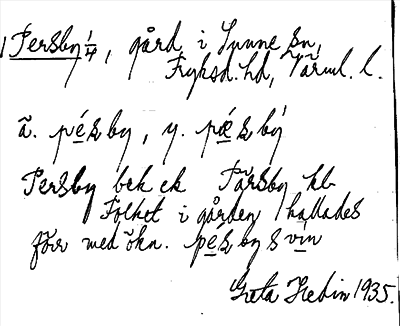 Persby 1/4, gård i Sunne sn,
Fryksd. hd, Värml. l.
ä. pésby, y. pǽsbý
Persby bek ek Pärsby kb
Folket i gården kallades
förr med ökn. pésbysvín
Greta Hedin 1935.